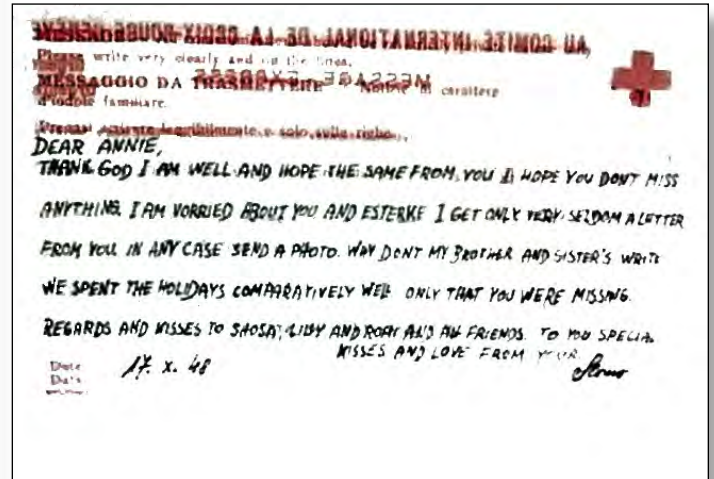 AU COMITE INTERNATIONAL DE LA CROIX-ROUGE
Please write very clearly and on the lines.
MESSAGGIO DA TRASMETTERE Notizie di carattere
d'indole familiare.
Pregasi scrivere leggibilmente e solo sulle righe.
DEAR ANNIE,
THANK GOD I AM WELL AND HOPE THE SAME FROM YOU I HOPE YOU DONT MISS
ANYTHING. I AM VORRIED ABOUT YOU AND ESTERKE I GET ONLY VERY SELDOM A LETTER
FROM YOU. IN ANY CASE SEND A PHOTO. WAY DONT MY BROTHER AND SISTER'S WRITE
WE SPENT THE HOLIDAYS COMPARATIVELY WELL ONLY THAT YOU WERE MISSING.
REGARDS AND KISSES TO SHOSA, LILLY AND AND ALL FRIENDS. TO YOU SPECIAL
KISSES AND LOVE FROM YOUR
Date 17. X. 48
Data